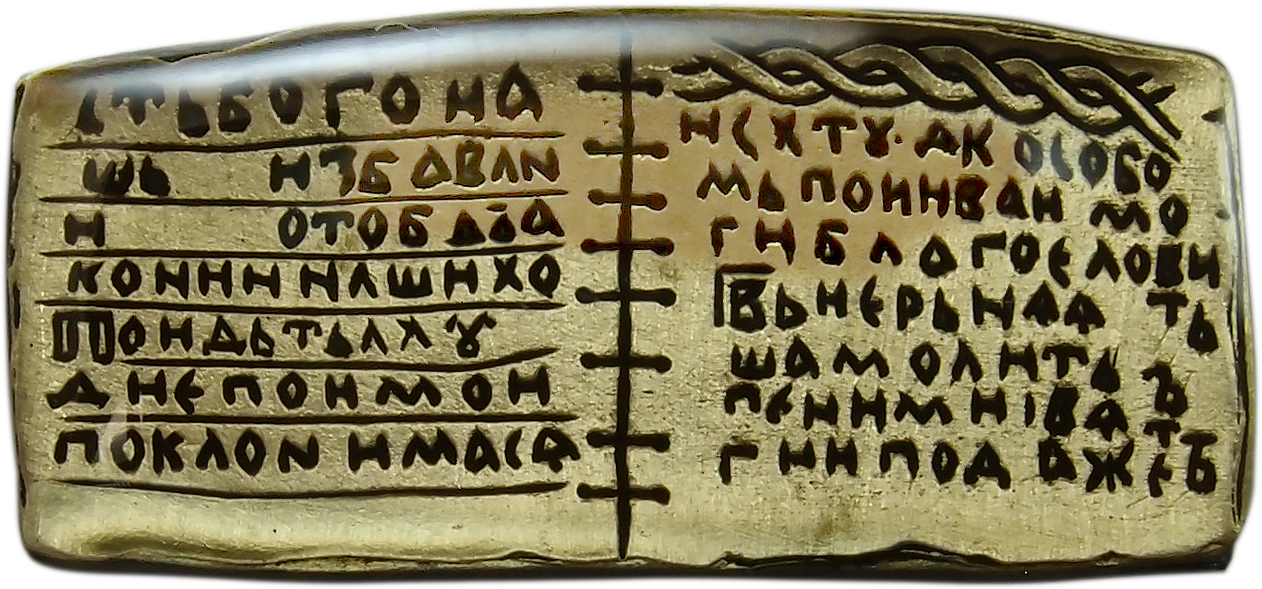 ТЬБОГОНА
шь НЗБАВЛN
Н ОТОБ
КОННН НАШНХО
ПОНДЬТЬ
ДНЄПОНМОН
ПОКЛОN НМАСѦ
НСХТУ·АК ОСОБО
МЬПОННВАН МО
ГНБЛАГОСЛОВИ
ВЬНЕРЬНАѦ ТЬ
ШАМОЛНТЬ Ъ
ПЕННМНІВА
ГННПОД